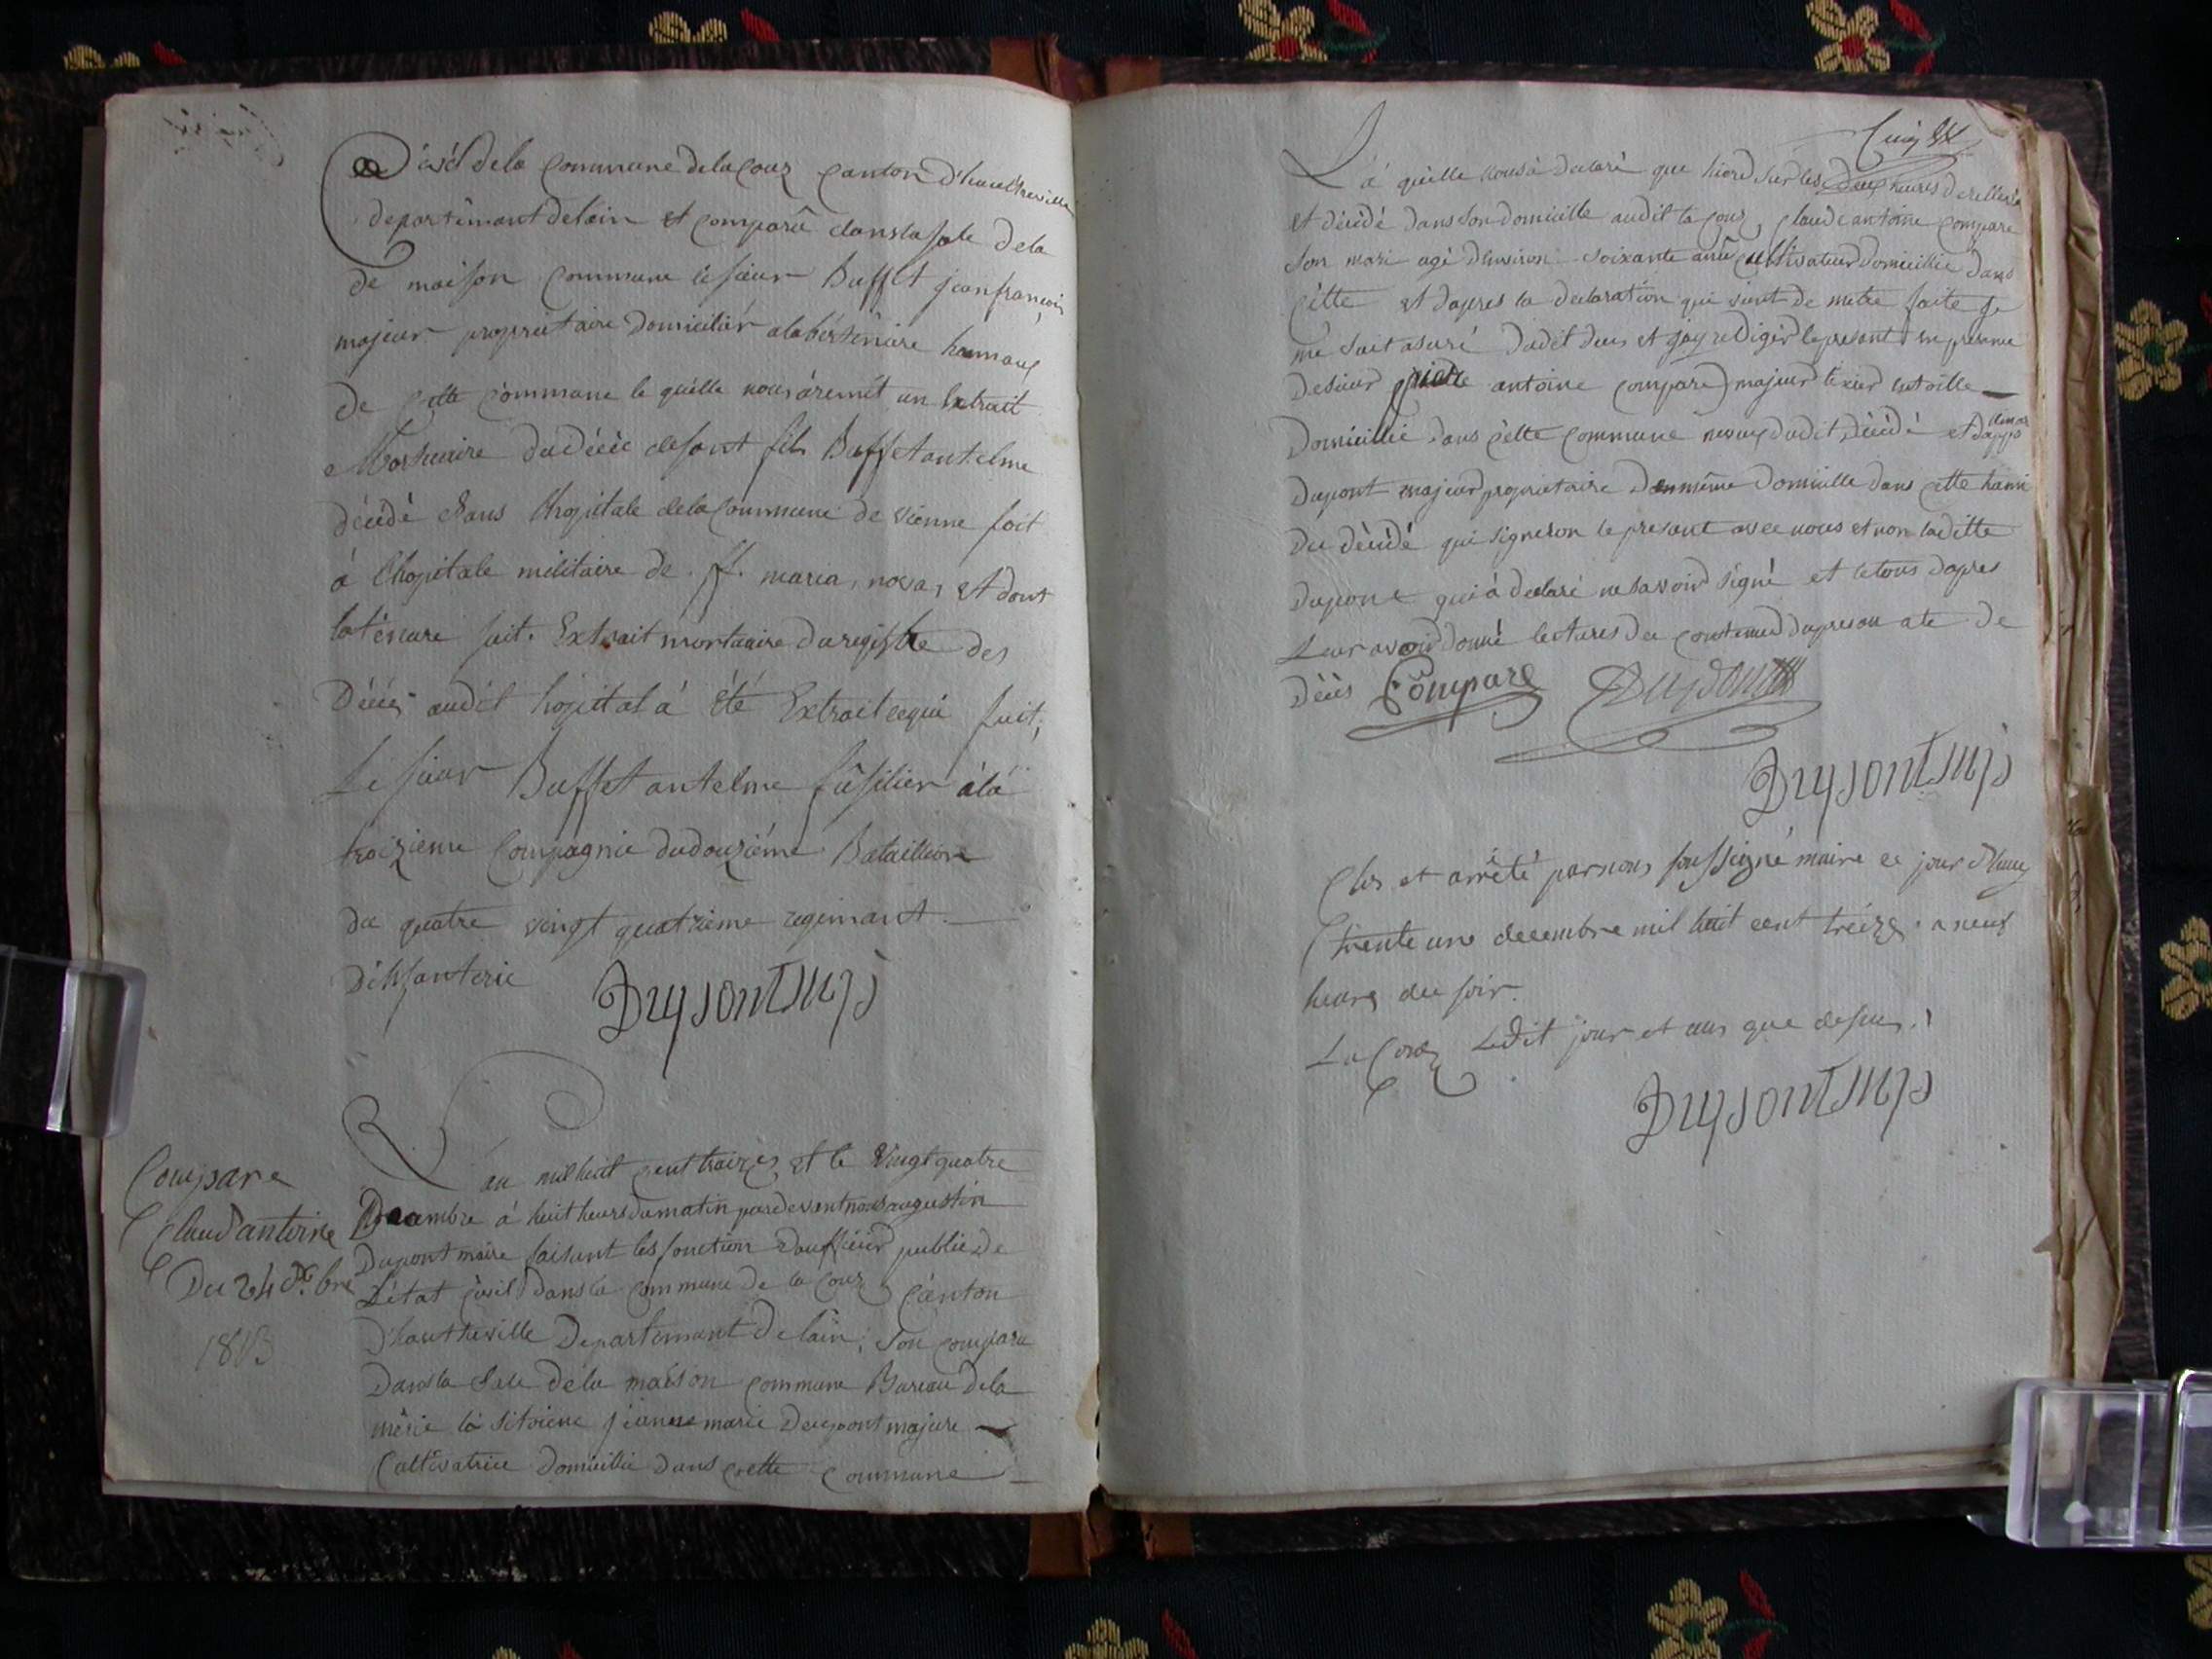 décés de la Commune de la Couz Canton d'hautteville
departémant delain et comparû dans la sale dela
dé maison Commune lé sieur Buffet jeanfrançois
majeur proprietaire domicilier alabertiniére hamaux
de cette Commune le quélle nous áremit un Extrait
Mortuaire du décéc desont fils Buffet antelme
décédé dans lhopitale dela Commune de vienne soit
á lhopitale militaire de st. maria, nova, et dont
laténeure suit. Extrait mortuaire du registre des
Décés audit hopital á été Extrait cequi suit;
Lé sieur Buffet antelme fusilier álá
troizieme Compagnie du douziéme Bataillion
du quatre vingt quatrieme regimant.
D'éinfanterie
Dupont mp
Compare
Claud antoine
Du 24 Xbre
1813
Lan mil huit cent traizes et le vingt quatre
Decembre á huit heurs du matin pardevant nous augustin
Dupont maire faisant les fonction doufficiér public de
L'état civil dans la commune de la Couz Canton
Dhautteville Departemant de lain; son compara
Dans la Sale déla maison commune Bureau dela
mérie la sitoiene jeanne marie Deupont majure
Cultivatrice domicillié dans cette commune
Cinq
Lá quélle nous á declaré que hierd sur les deux heures de rellevé
et décédé dans son domicille audit la Couz Claude antoine Compare
Son mari agé denviron soixante anné Cultivateur domicillié dans
Cétte et dapres la declaration qui vient de metre faite je
mé suit asuré dudit deces et jay redigér le present en presence
desieur antoine Compare majeur téxier entoille
Domicillié dans célte Commune nevaux dudit décédé et
Dupont majeur proprietaire denméme Domicille dans cette hami
du décédé qui signeron le presant avec nous et non laditte
Dupont qui á declaré ne savoir signé et le tous dapres
Leur avoir donné lectures du contenud dupresan ate de
Décés Compare Dupont
Dupont mp
Clos et arrété par nous soussigné maire ce jour dhuuy
trente une decembre mil huit cent tréize a neuf
heurs du soir.
La Couz Ledit jour et ans que desus.
Dupont mp